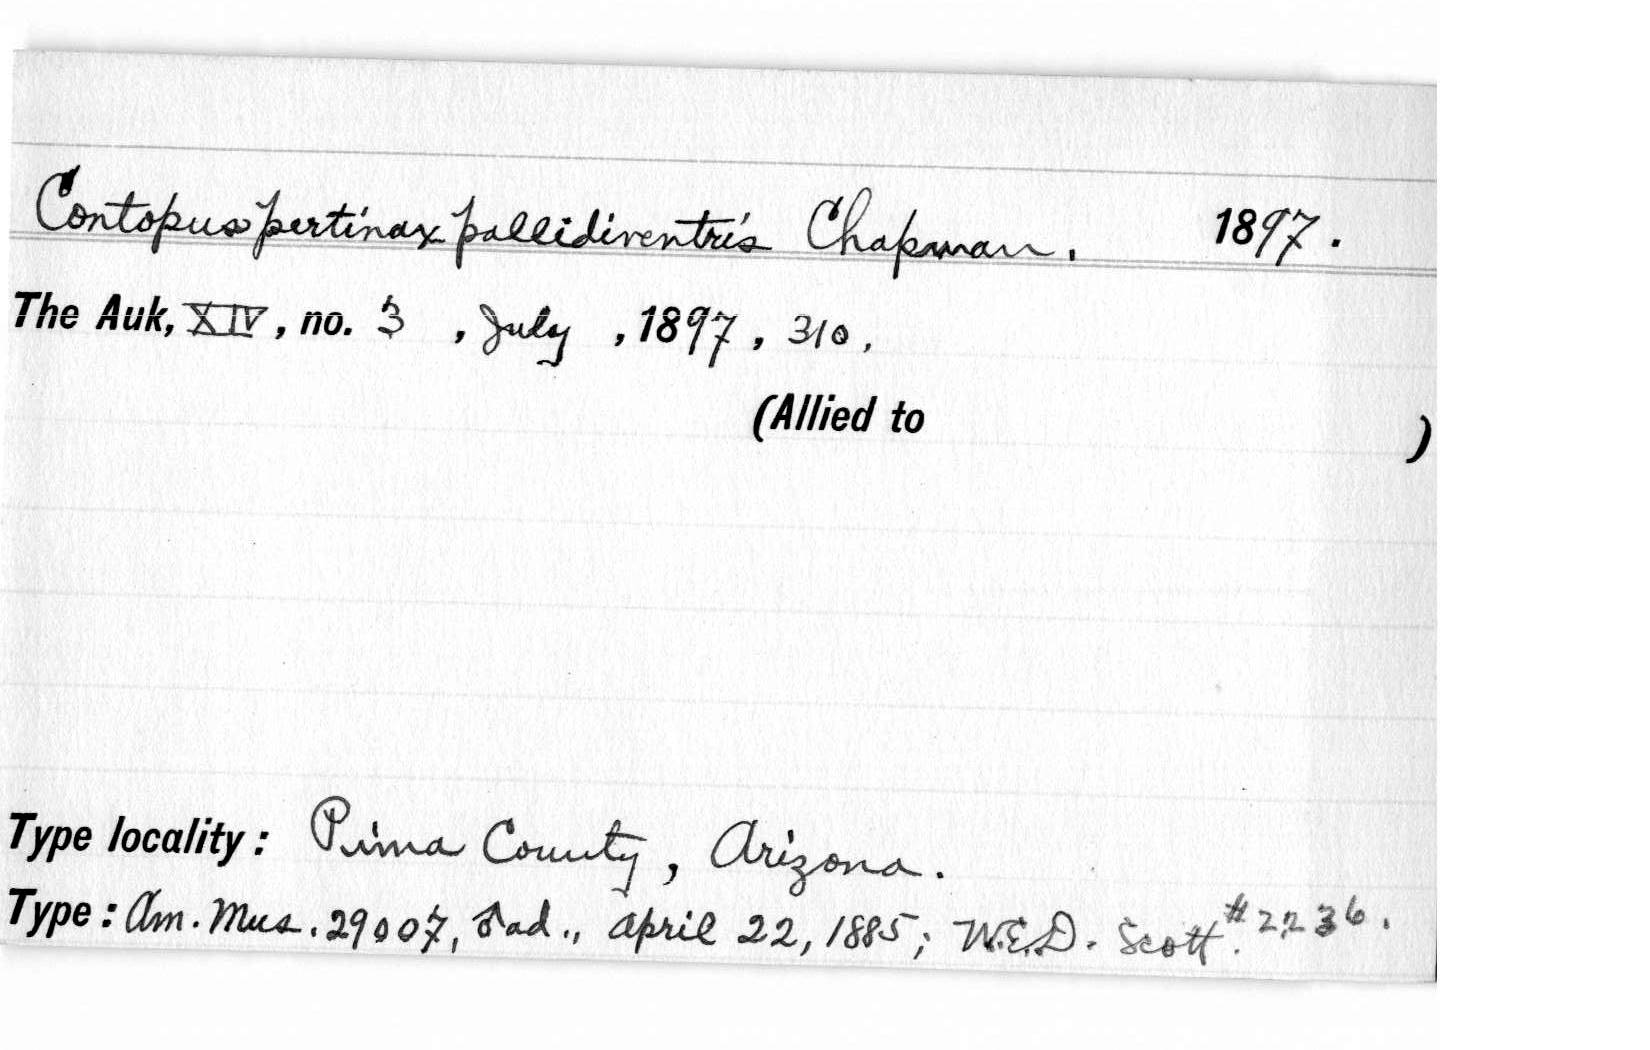 Contopus pertinax pallidiventris Chapman. 1897.
The Auk, XIV, no. 3, July, 1897, 310.
(Allied to )
Type locality: Pima County, Arizona.
Type: Am. Mus. 29007, ♂ ad., April 22, 1885; W.E.D. Scott. #2236.